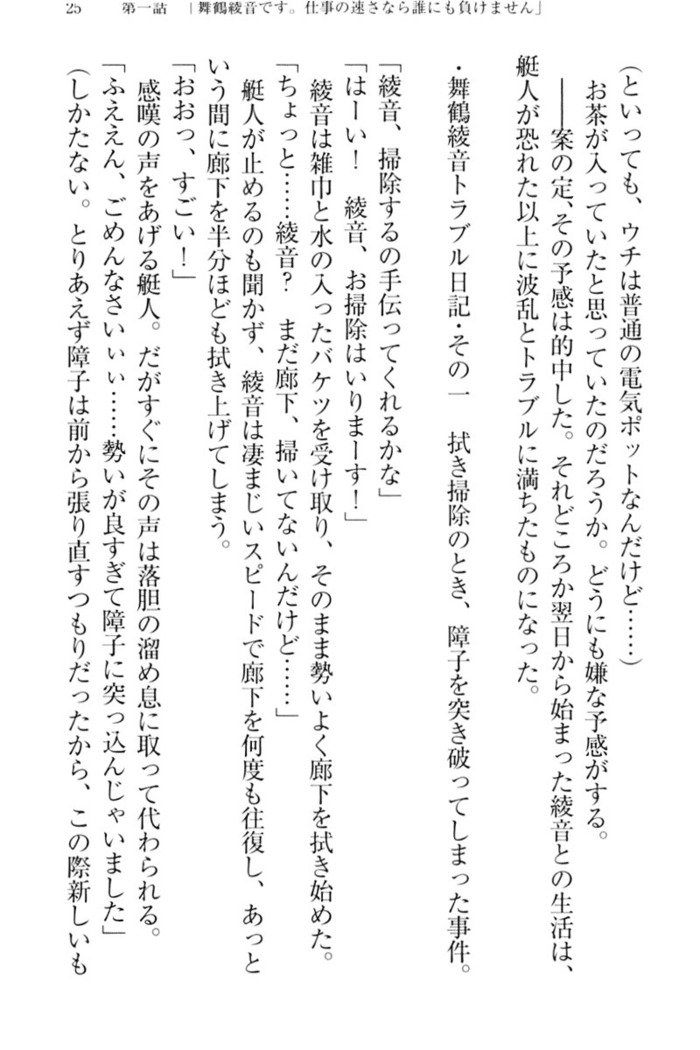 25　第一話　「舞鶴綾音です。仕事の速さなら誰にも負けません」
（といっても、ウチは普通の電気ポットなんだけど……）
お茶が入っていたと思っていたのだろうか。どうにも嫌な予感がする。
――案の定、その予感は的中した。それどころか翌日から始まった綾音との生活は、
艇人が恐れた以上に波乱とトラブルに満ちたものになった。
・舞鶴綾音トラブル日記・その一　拭き掃除のとき、障子を突き破ってしまった事件。
「綾音、掃除するの手伝ってくれるかな」
「はーい！　綾音、お掃除はいりまーす！」
綾音は雑巾と水の入ったバケツを受け取り、そのまま勢いよく廊下を拭き始めた。
「ちょっと……綾音？　まだ廊下、掃いてないんだけど……」
艇人が止めるのも聞かず、綾音は凄まじいスピードで廊下を何度も往復し、あっと
いう間に廊下を半分ほども拭き上げてしまう。
「おおっ、すごい！」
感嘆の声をあげる艇人。だがすぐにその声は落胆の溜め息に取って代わられる。
「ふええん、ごめんなさいぃぃ……勢いが良すぎて障子に突っ込んじゃいました」
（しかたない。とりあえず障子は前から張り直すつもりだったから、この際新しいも